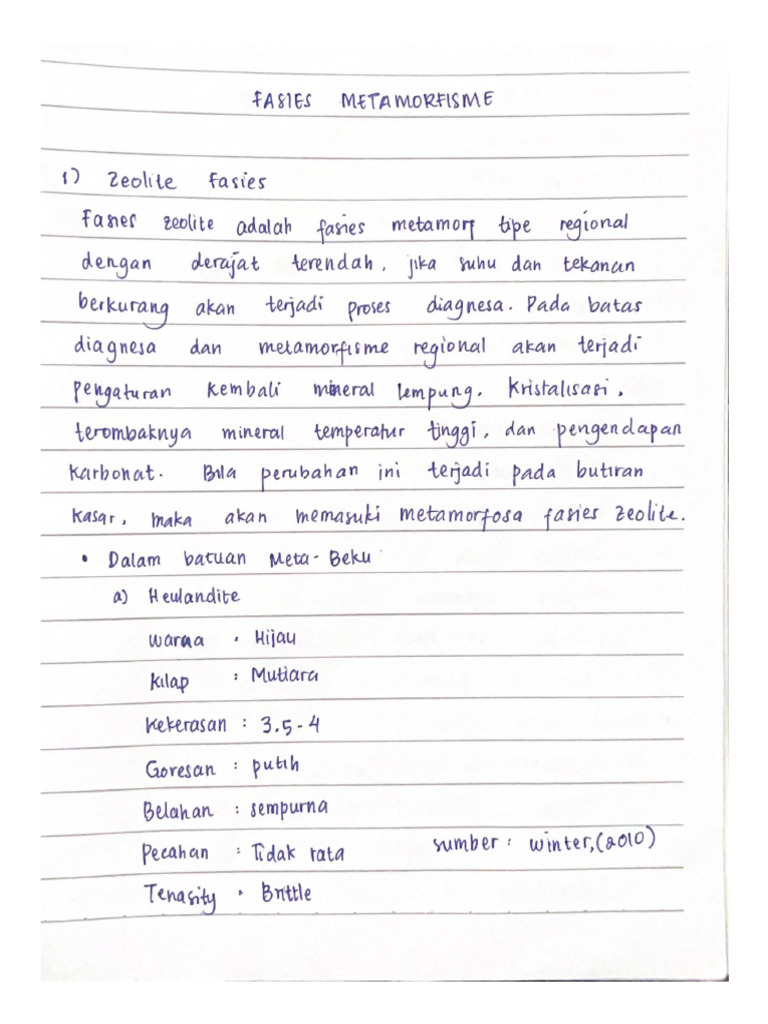 FASIES METAMORFISME
1) Zeolite Fasies
Fasies zeolite adalah fasies metamorf tipe regional
dengan derajat terendah, jika suhu dan tekanan
berkurang akan terjadi proses diagnesa. Pada batas
diagnesa dan metamorfisme regional akan terjadi
pengaturan kembali mineral lempung, kristalisasi,
terombaknya mineral temperatur tinggi, dan pengendapan
karbonat. Bila perubahan ini terjadi pada butiran
kasar, maka akan memasuki metamorfosa fasies zeolite.
• Dalam batuan Meta-Beku
a) Heulandite
Warna : Hijau
Kilap : Mutiara
Kekerasan : 3.5-4
Goresan : putih
Belahan : sempurna
Pecahan : Tidak rata sumber : Winter,(2010)
Tenasity : Brittle